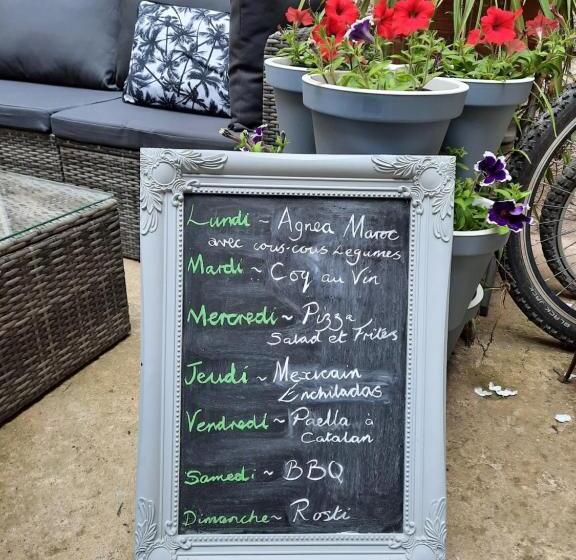 Lundi ~ Agnea Maroc
avec cous-cous Legumes
Mardi ~ Coq au Vin
Mercredi ~ Pizza
Salad et Frites
Jeudi ~ Mexicain
Enchiladas
Vendredi ~ Paella à
Catalan
Samedi ~ BBQ
Dimanche ~ Rosti
BLACK JACK